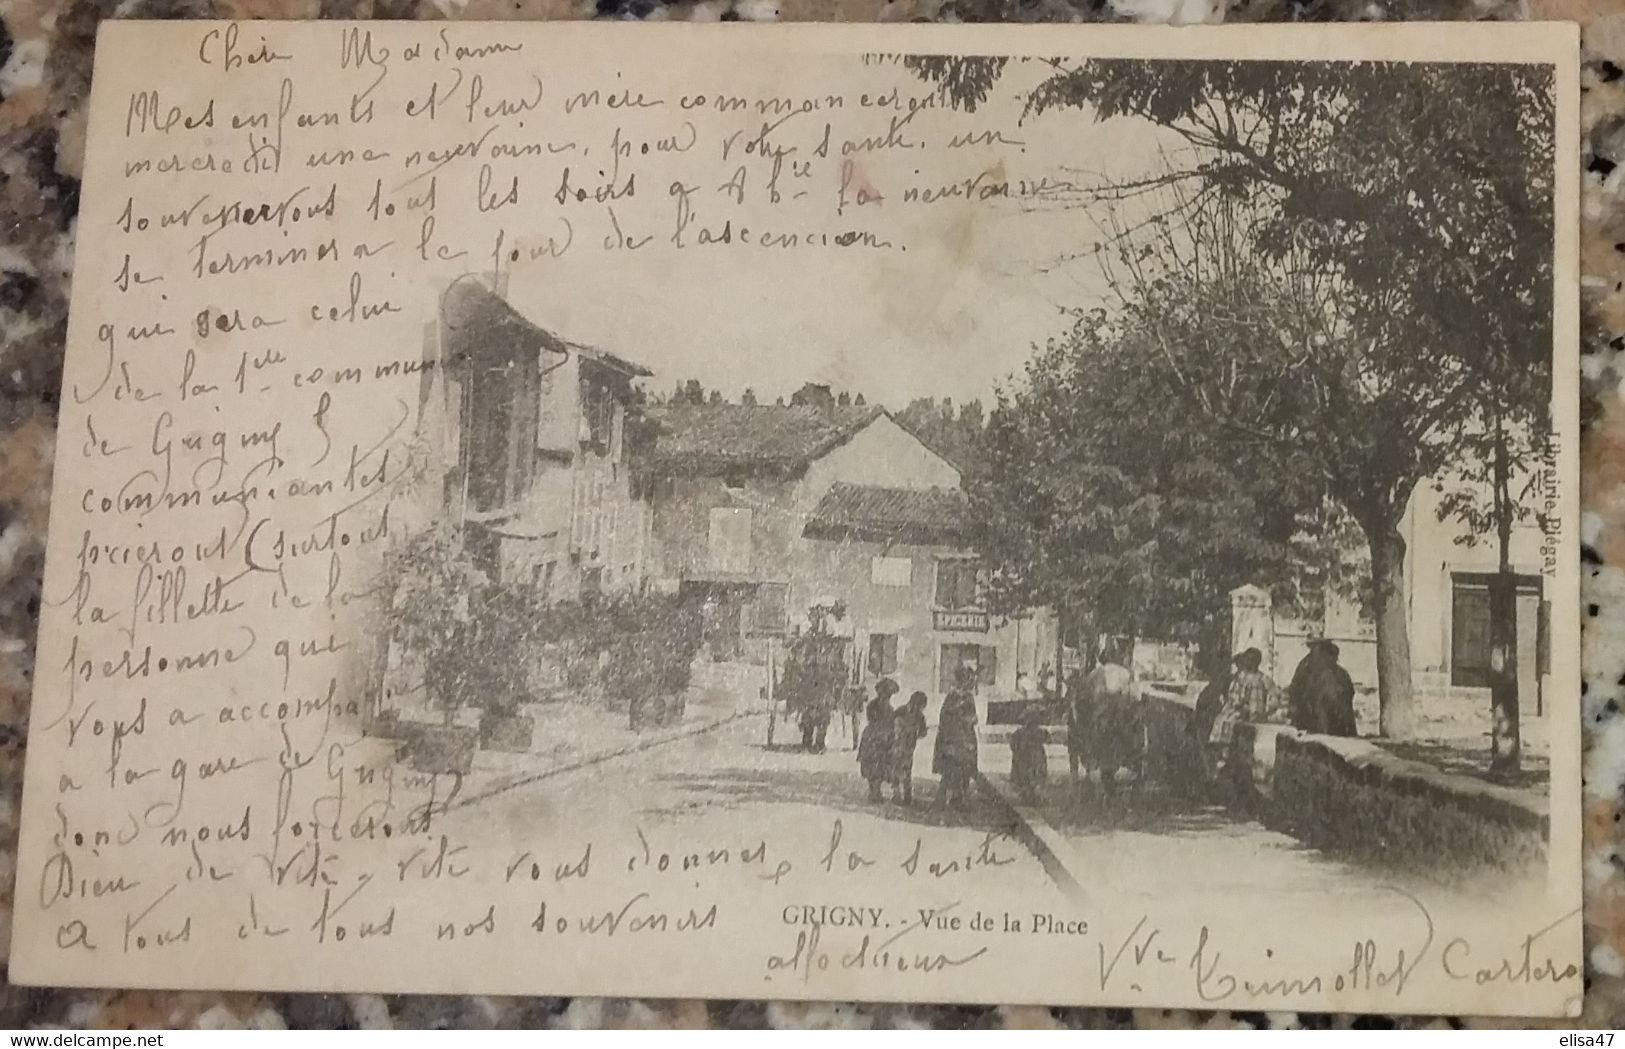 Chère Madame
Mes enfants et leur mère commancerons
mercredi une neuvaine, pour votre santé. un
souvenervous tous les soirs a 8 h la neuvaine
se terminera le jour de l'ascencion.
qui sera celui
de la 1re commun
de Grigny 5
communiantes
prierout (surtout
la fillette de la
personne qui
vous a accompa
a la gare de Grigny
donc nous forcerons
Dieu de vite, vite vous donner la santé
a tous de tous nos souvenirs
affectueux
Vve
EPICERIE
GRIGNY. - Vue de la Place
Librairie Piégay
elisa47